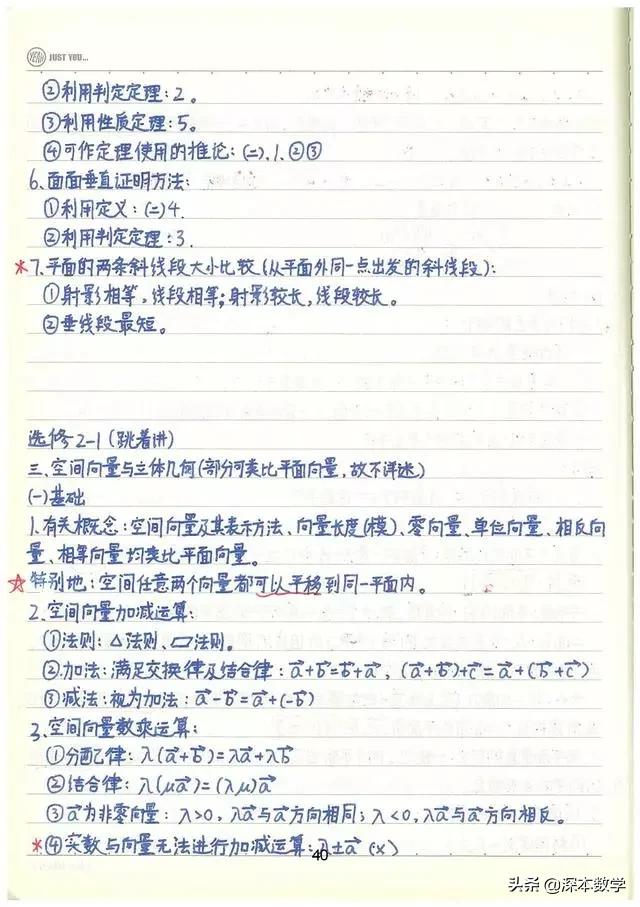 YEAH JUST YOU...
②利用判定定理:2。
③利用性质定理:5。
④可作定理使用的推论:(二).1.②③
6.面面垂直证明方法:
①利用定义:(二)4.
②利用判定定理:3.
*7.平面的两条斜线段大小比较(从平面外同一点出发的斜线段):
①射影相等,线段相等;射影较长,线段较长。
②垂线段最短。
选修2-1(跳着讲)
三、空间向量与立体几何(部分可类比平面向量,故不详述)
(一)基础
1.有关概念:空间向量及其表示方法、向量长度(模)、零向量、单位向量、相反向
量、相等向量均类比平面向量。
☆特别地:空间任意两个向量都可以平移到同一平面内。
2.空间向量加减运算:
①法则:△法则、▱法则。
②加法:满足交换律及结合律:a⃗+b⃗=b⃗+a⃗,(a⃗+b⃗)+c⃗=a⃗+(b⃗+c⃗)
③减法:视为加法:a⃗-b⃗=a⃗+(-b⃗)
3.空间向量数乘运算:
①分配律:λ(a⃗+b⃗)=λa⃗+λb⃗
②结合律:λ(μa⃗)=(λμ)a⃗
③a⃗为非零向量:λ>0,λa⃗与a⃗方向相同;λ<0,λa⃗与a⃗方向相反。
*④实数与向量无法进行加减运算:λ±a⃗(×)
40
头条@深本数学